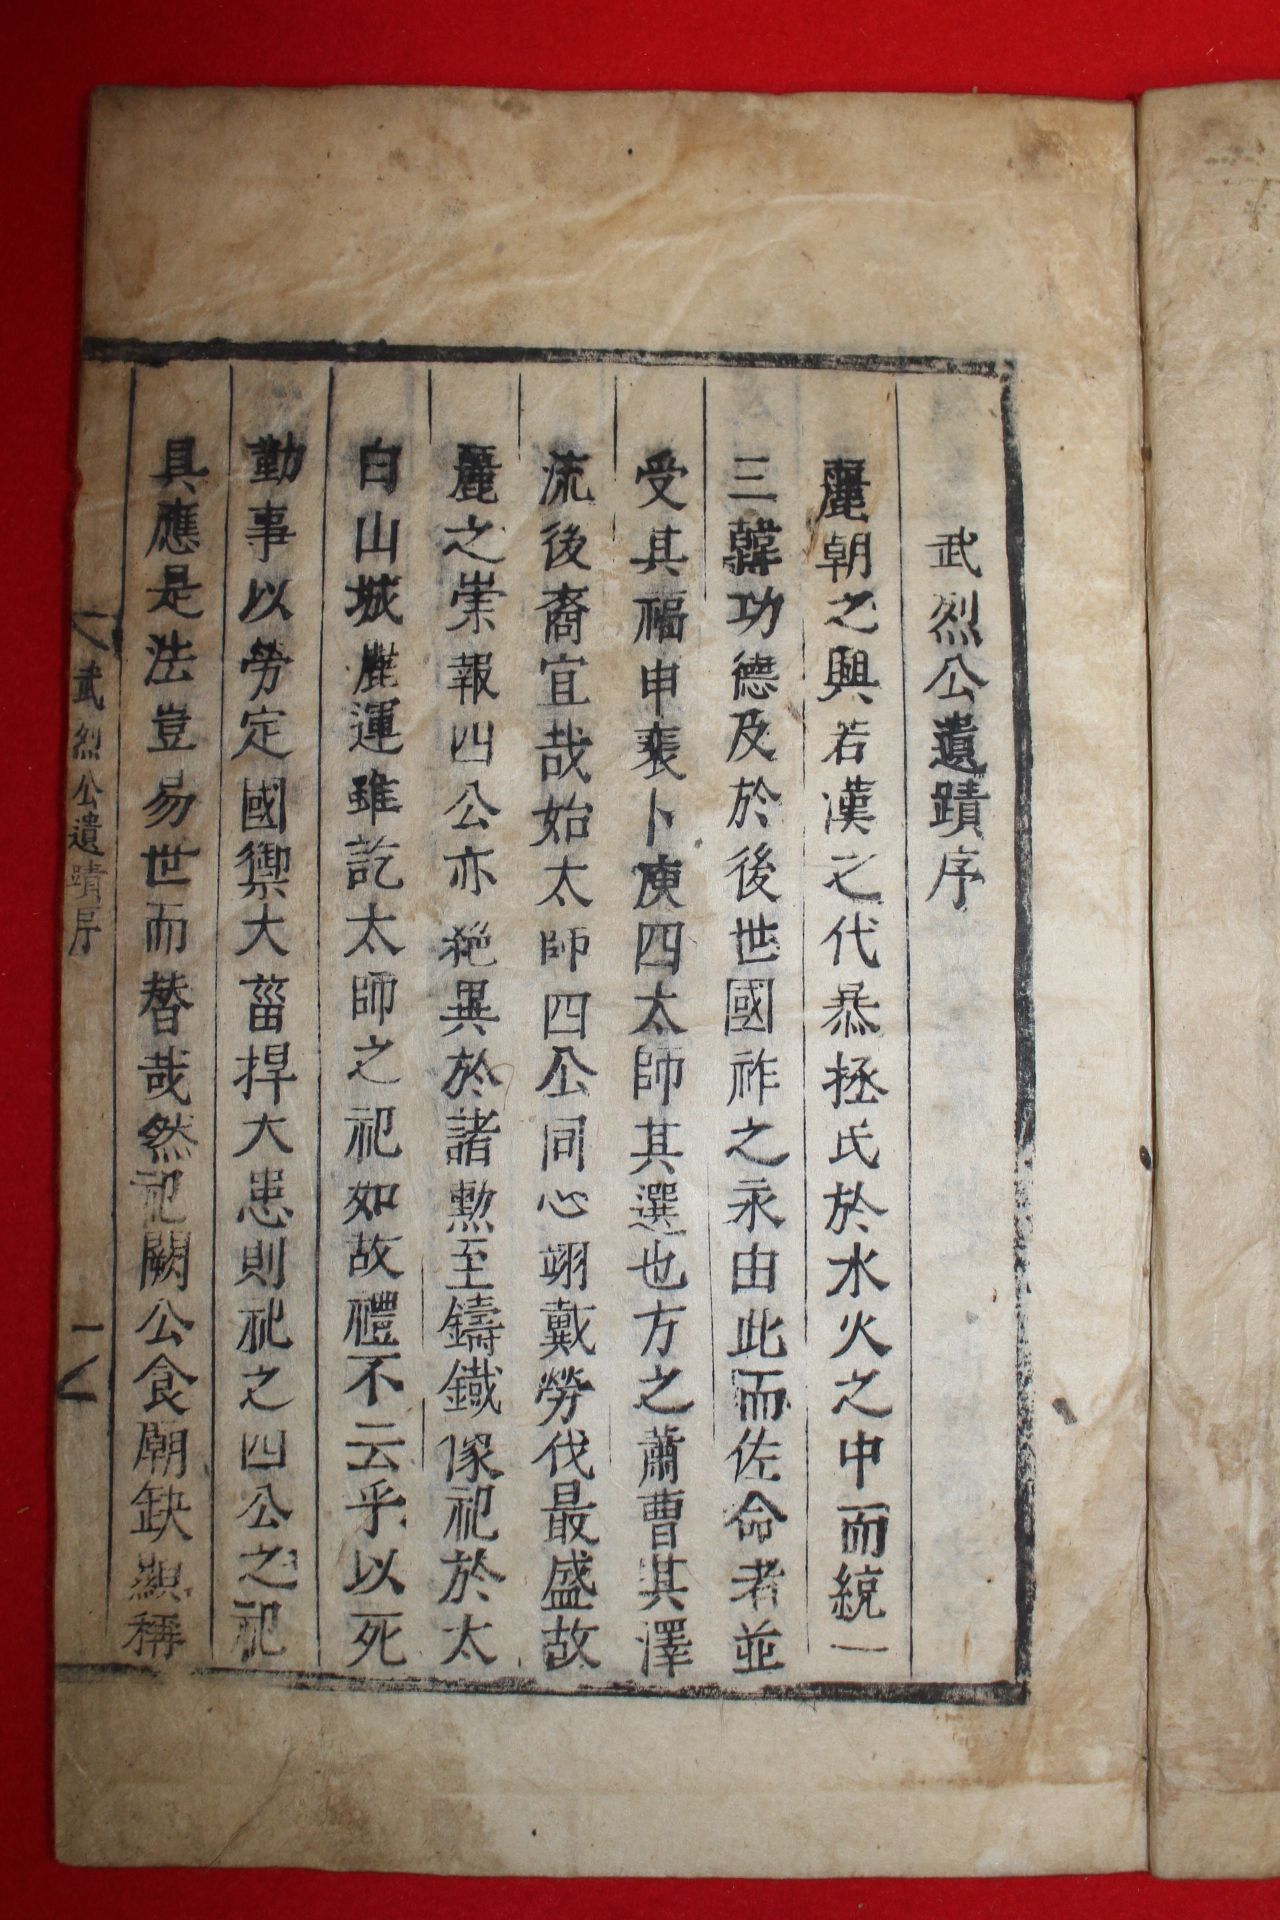 武烈公遺蹟序
麗朝之興若漢之代㬥拯民於水火之中而統一
三韓功德及於後世國祚之永由此而佐命者並
受其福申裵卜庾四太師其選也方之蕭曹其澤
流後裔宜哉始太師四公同心翊戴勞伐最盛故
麗之崇報四公亦絶異於諸勳至鑄鐵像祀於太
白山城麗運雖訖太師之祀如故禮不云乎以死
勤事以勞定國禦大菑捍大患則祀之四公之祀
具應是法豈易世而替哉然祀闕公食廟缺顯稱
武烈公遺蹟序
一